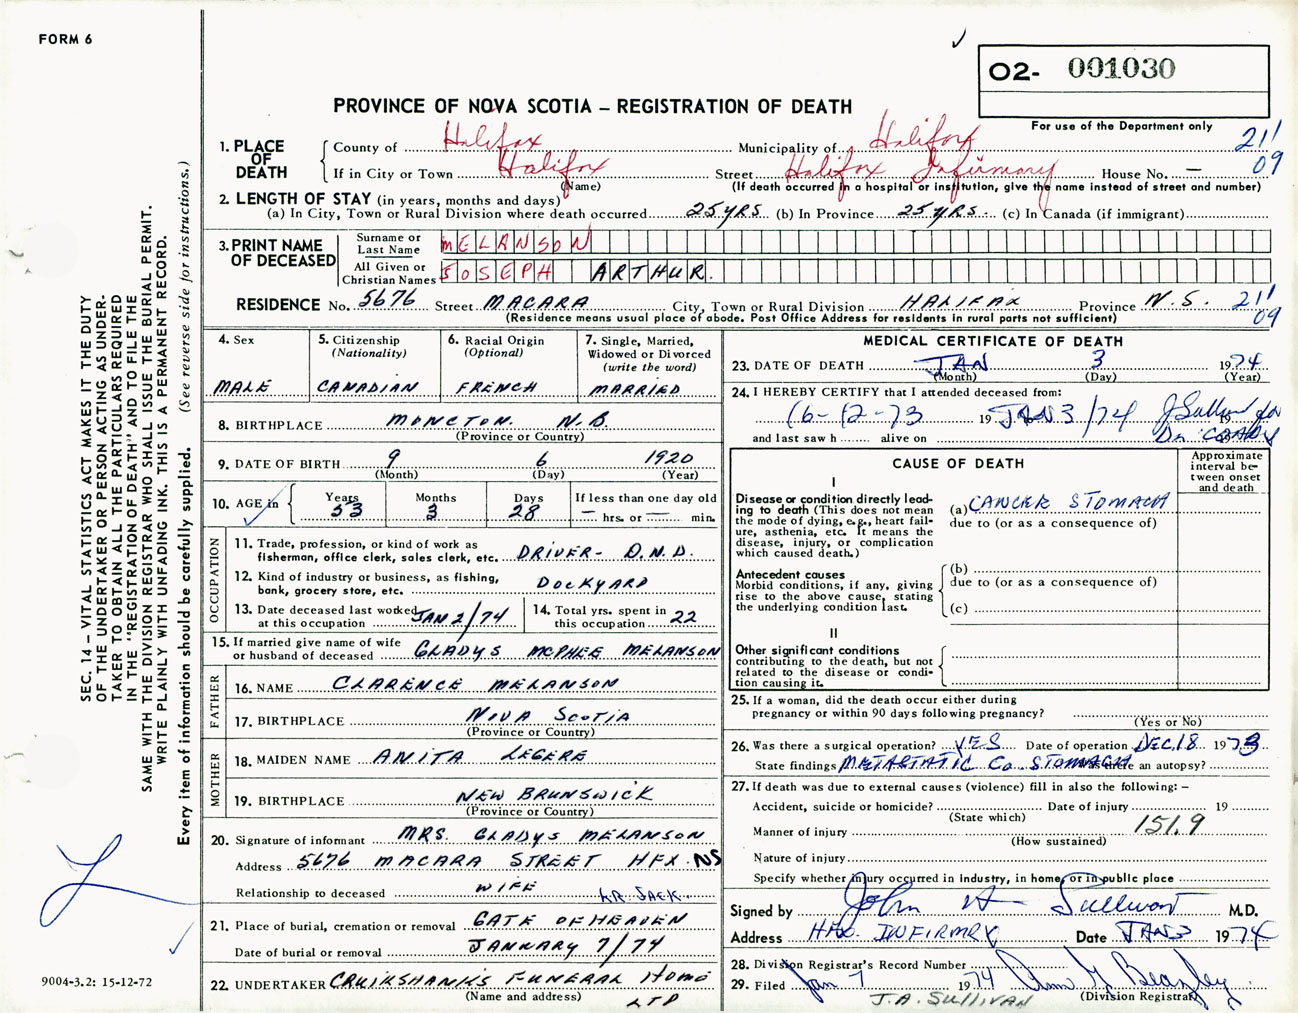 FORM 6
O2- 001030
PROVINCE OF NOVA SCOTIA – REGISTRATION OF DEATH
For use of the Department only
1. PLACE OF DEATH
County of Halifax Municipality of Halifax 211
If in City or Town Halifax Street Halifax Infirmary House No. — 09
(Name) (If death occurred in a hospital or institution, give the name instead of street and number)
2. LENGTH OF STAY (in years, months and days)
(a) In City, Town or Rural Division where death occurred 25 YRS (b) In Province 25 YRS. (c) In Canada (if immigrant)
3. PRINT NAME OF DECEASED
Surname or Last Name MELANSON
All Given or Christian Names JOSEPH ARTHUR.
RESIDENCE No. 5676 Street MACARA City, Town or Rural Division HALIFAX Province N.S. 211
(Residence means usual place of abode. Post Office Address for residents in rural parts not sufficient) 09
4. Sex
MALE
5. Citizenship
(Nationality)
CANADIAN
6. Racial Origin
(Optional)
FRENCH
7. Single, Married,
Widowed or Divorced
(write the word)
MARRIED
8. BIRTHPLACE MONCTON. N.B.
(Province or Country)
9. DATE OF BIRTH 9 6 1920
(Month) (Day) (Year)
10. AGE in
Years Months Days If less than one day old
53 3 28 — hrs. or — min.
OCCUPATION
11. Trade, profession, or kind of work as
fisherman, office clerk, sales clerk, etc. DRIVER - D.N.D.
12. Kind of industry or business, as fishing,
bank, grocery store, etc. DOCKYARD
13. Date deceased last worked
at this occupation JAN 2/74
14. Total yrs. spent in
this occupation 22
15. If married give name of wife
or husband of deceased GLADYS MCPHEE MELANSON
FATHER
16. NAME CLARENCE MELANSON
17. BIRTHPLACE NOVA SCOTIA
(Province or Country)
MOTHER
18. MAIDEN NAME ANITA LEGERE
19. BIRTHPLACE NEW BRUNSWICK
(Province or Country)
20. Signature of informant MRS. GLADYS MELANSON
Address 5676 MACARA STREET HFX. NS
Relationship to deceased WIFE
LR. SACK.
21. Place of burial, cremation or removal GATE OF HEAVEN
Date of burial or removal JANUARY 7/74
22. UNDERTAKER CRUIKSHANK'S FUNERAL HOME
(Name and address) LTD
MEDICAL CERTIFICATE OF DEATH
23. DATE OF DEATH JAN 3 1974
(Month) (Day) (Year)
24. I HEREBY CERTIFY that I attended deceased from:
16-12-73 19 JAN 3/74 J Sullivan for 19
and last saw h alive on Dr. COADY
CAUSE OF DEATH
Approximate interval between onset and death
I
Disease or condition directly lead-
ing to death (This does not mean
the mode of dying, e.g., heart fail-
ure, asthenia, etc. It means the
disease, injury, or complication
which caused death.)
(a) CANCER STOMACH
due to (or as a consequence of)
Antecedent causes
Morbid conditions, if any, giving
rise to the above cause, stating
the underlying condition last.
(b)
due to (or as a consequence of)
(c)
II
Other significant conditions
contributing to the death, but not
related to the disease or condi-
tion causing it.
25. If a woman, did the death occur either during
pregnancy or within 90 days following pregnancy?
(Yes or No)
26. Was there a surgical operation? YES Date of operation DEC.18 1973
State findings METASTATIC Ca STOMACH Was there an autopsy?
27. If death was due to external causes (violence) fill in also the following: –
Accident, suicide or homicide? Date of injury 19
(State which)
Manner of injury 151.9
(How sustained)
Nature of injury
Specify whether injury occurred in industry, in home, or in public place
Signed by John A Sullivan M.D.
Address HFX. INFIRMRY Date JAN 3 1974
28. Division Registrar's Record Number
29. Filed Jan 7 1974
(Division Registrar)
J.A. SULLIVAN
SEC. 14 – VITAL STATISTICS ACT MAKES IT THE DUTY
OF THE UNDERTAKER OR PERSON ACTING AS UNDER-
TAKER TO OBTAIN ALL THE PARTICULARS REQUIRED
IN THE "REGISTRATION OF DEATH" AND TO FILE THE
SAME WITH THE DIVISION REGISTRAR WHO SHALL ISSUE THE BURIAL PERMIT.
WRITE PLAINLY WITH UNFADING INK. THIS IS A PERMANENT RECORD.
Every item of information should be carefully supplied. (See reverse side for instructions.)
9004-3.2: 15-12-72